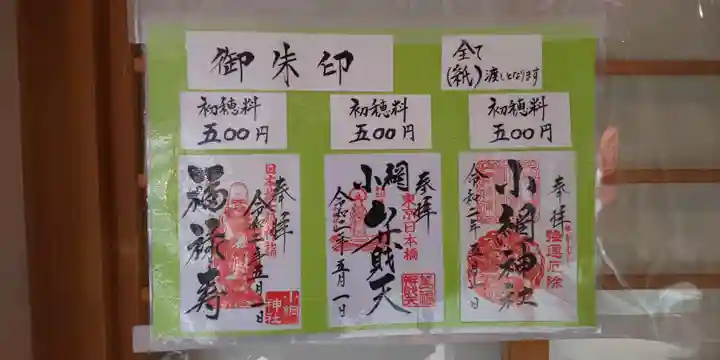 御朱印
全て
(紙)渡しとなります
初穂料
五〇〇円
初穂料
五〇〇円
初穂料
五〇〇円
奉拝
福禄寿
令和二年五月一日
小網
神社
奉拝
東京日本橋
小網弁財天
令和二年五月一日
奉拝
強運厄除
小網神社
令和二年五月一日